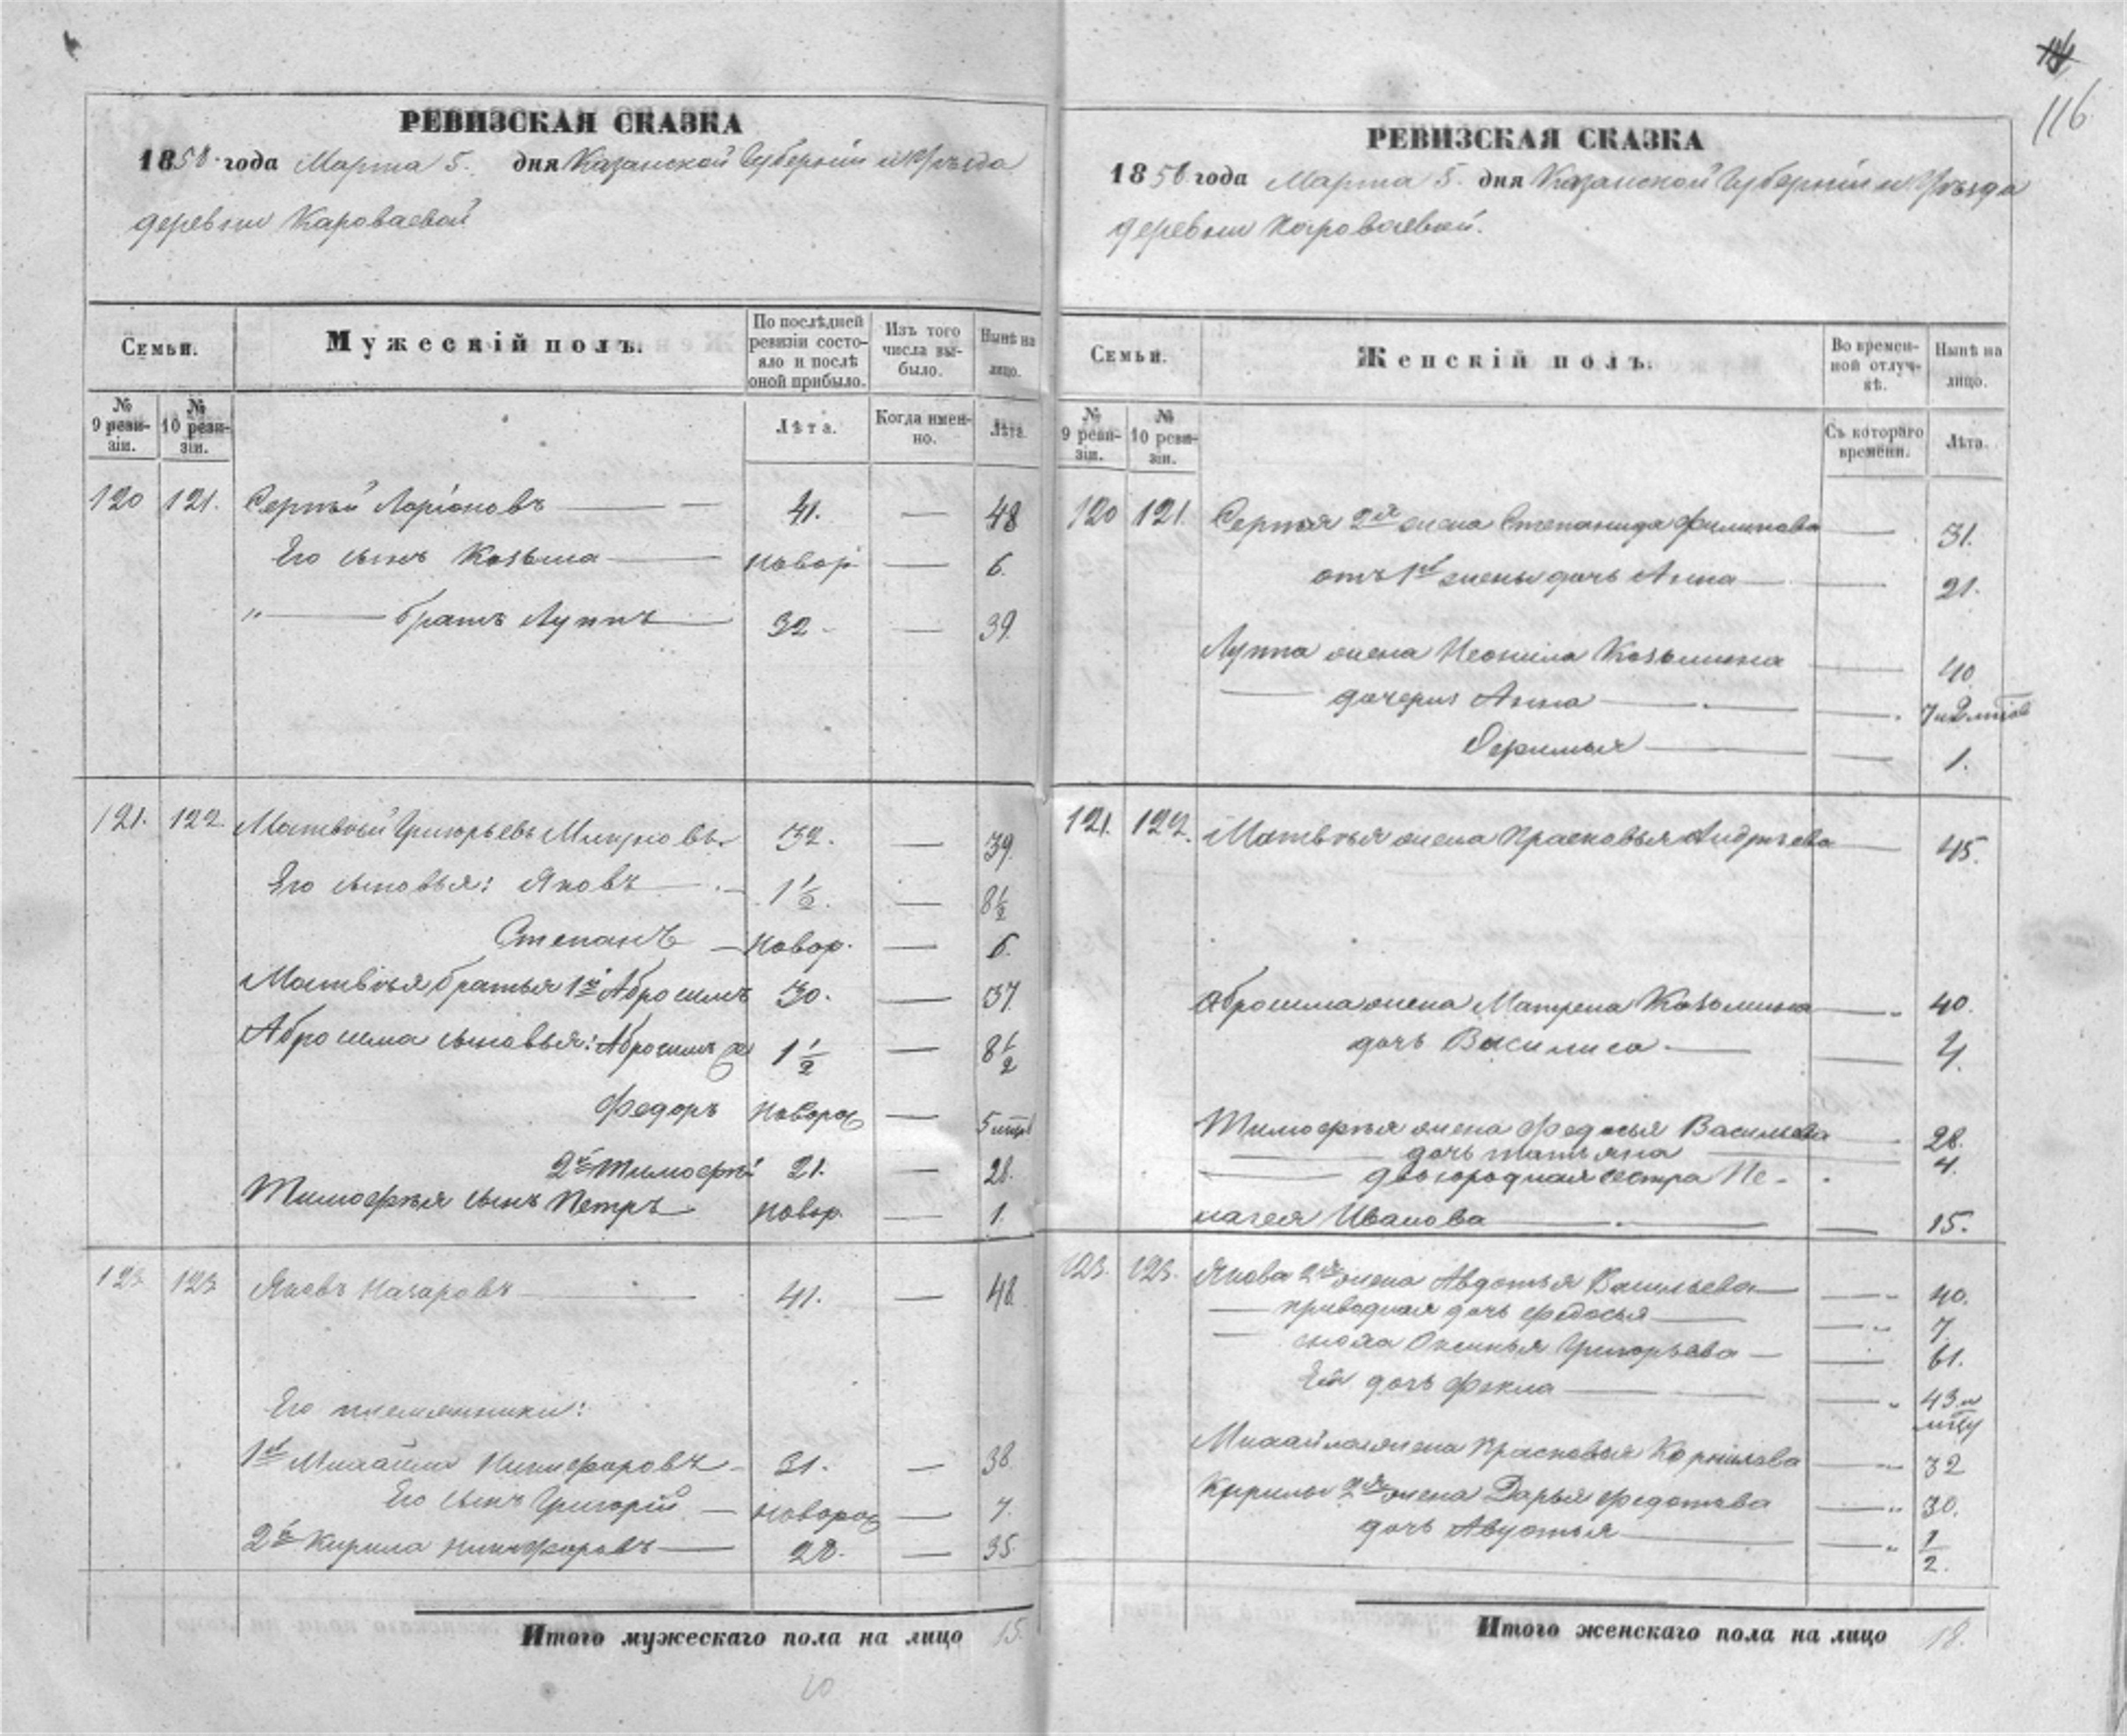 116
РЕВИЗСКАЯ СКАЗКА
1858 года Марта 5. дня Казанской Губерніи и Уѣзда
деревни Караваевой
Семьи.
Мужескій полъ.
По послѣдней ревизіи состояло и послѣ оной прибыло.
Изъ того числа выбыло.
Нынѣ на лицо.
№ 9 ревизіи.
№ 10 ревизіи.
Лѣта.
Когда именно.
Лѣта.
120 121. Сергѣй Ларіоновъ — 41. — 48
Его сынъ Козьма — новор — 6.
" — братъ Луппъ — 32 — 39.
121. 122. Матвѣй Григорьевъ 32. — 39.
Его сыновья: Яковъ — 1½. — 8½
Степанъ — новор. — 6.
Матвѣя братья 1й Абросимъ 30. — 37.
Абросима сыновья: Абросимъ 1½ — 8½
Федоръ новорож —
2й Тимофѣй 21. — 28.
Тимофѣя сынъ Петръ новор. — 1.
123 Яковъ Назаровъ — 41. — 48
Его племянники:
1й Михайло Никифоровъ — 31. — 38.
Его сынъ Григорій — новорож — 7.
2й Кирила Никифоровъ — 28. — 35
Итого мужескаго пола на лицо 15.
РЕВИЗСКАЯ СКАЗКА
1858 года Марта 5. дня Казанской Губерніи и Уѣзда
деревни Караваевой.
Семьи.
Женскій полъ.
Во временной отлучкѣ.
Нынѣ на лицо.
№ 9 ревизіи.
№ 10 ревизіи.
Съ котораго времени.
Лѣта.
120 121. Сергѣя 2я жена Степанида Филипова — 31.
отъ 1й жены дочь Анна — 21.
Луппа жена Неонила Козьмина — 40
— дочери Анна —
— 1.
121. 122. Матвѣя жена Прасковья Андрѣева — 45.
Абросима жена Матрена Козьмина — 40.
дочь Василиса —
Тимофѣя жена Федосья Васильева — 28.
— дочь Татьяна — 4.
— двоюродная сестра Пе-
лагея Иванова — 15.
123. 123. Якова 2я жена Авдотья Васильева — 40.
— приводная дочь Федосья — 7.
— сноха Оксинья Григорьева — 61.
Ей дочь Фекла —
Михайлы жена Прасковья Корнилова — 32
Кирилы 2я жена Дарья Федотова — 30.
дочь Авдотья — ½.
Итого женскаго пола на лицо 18.